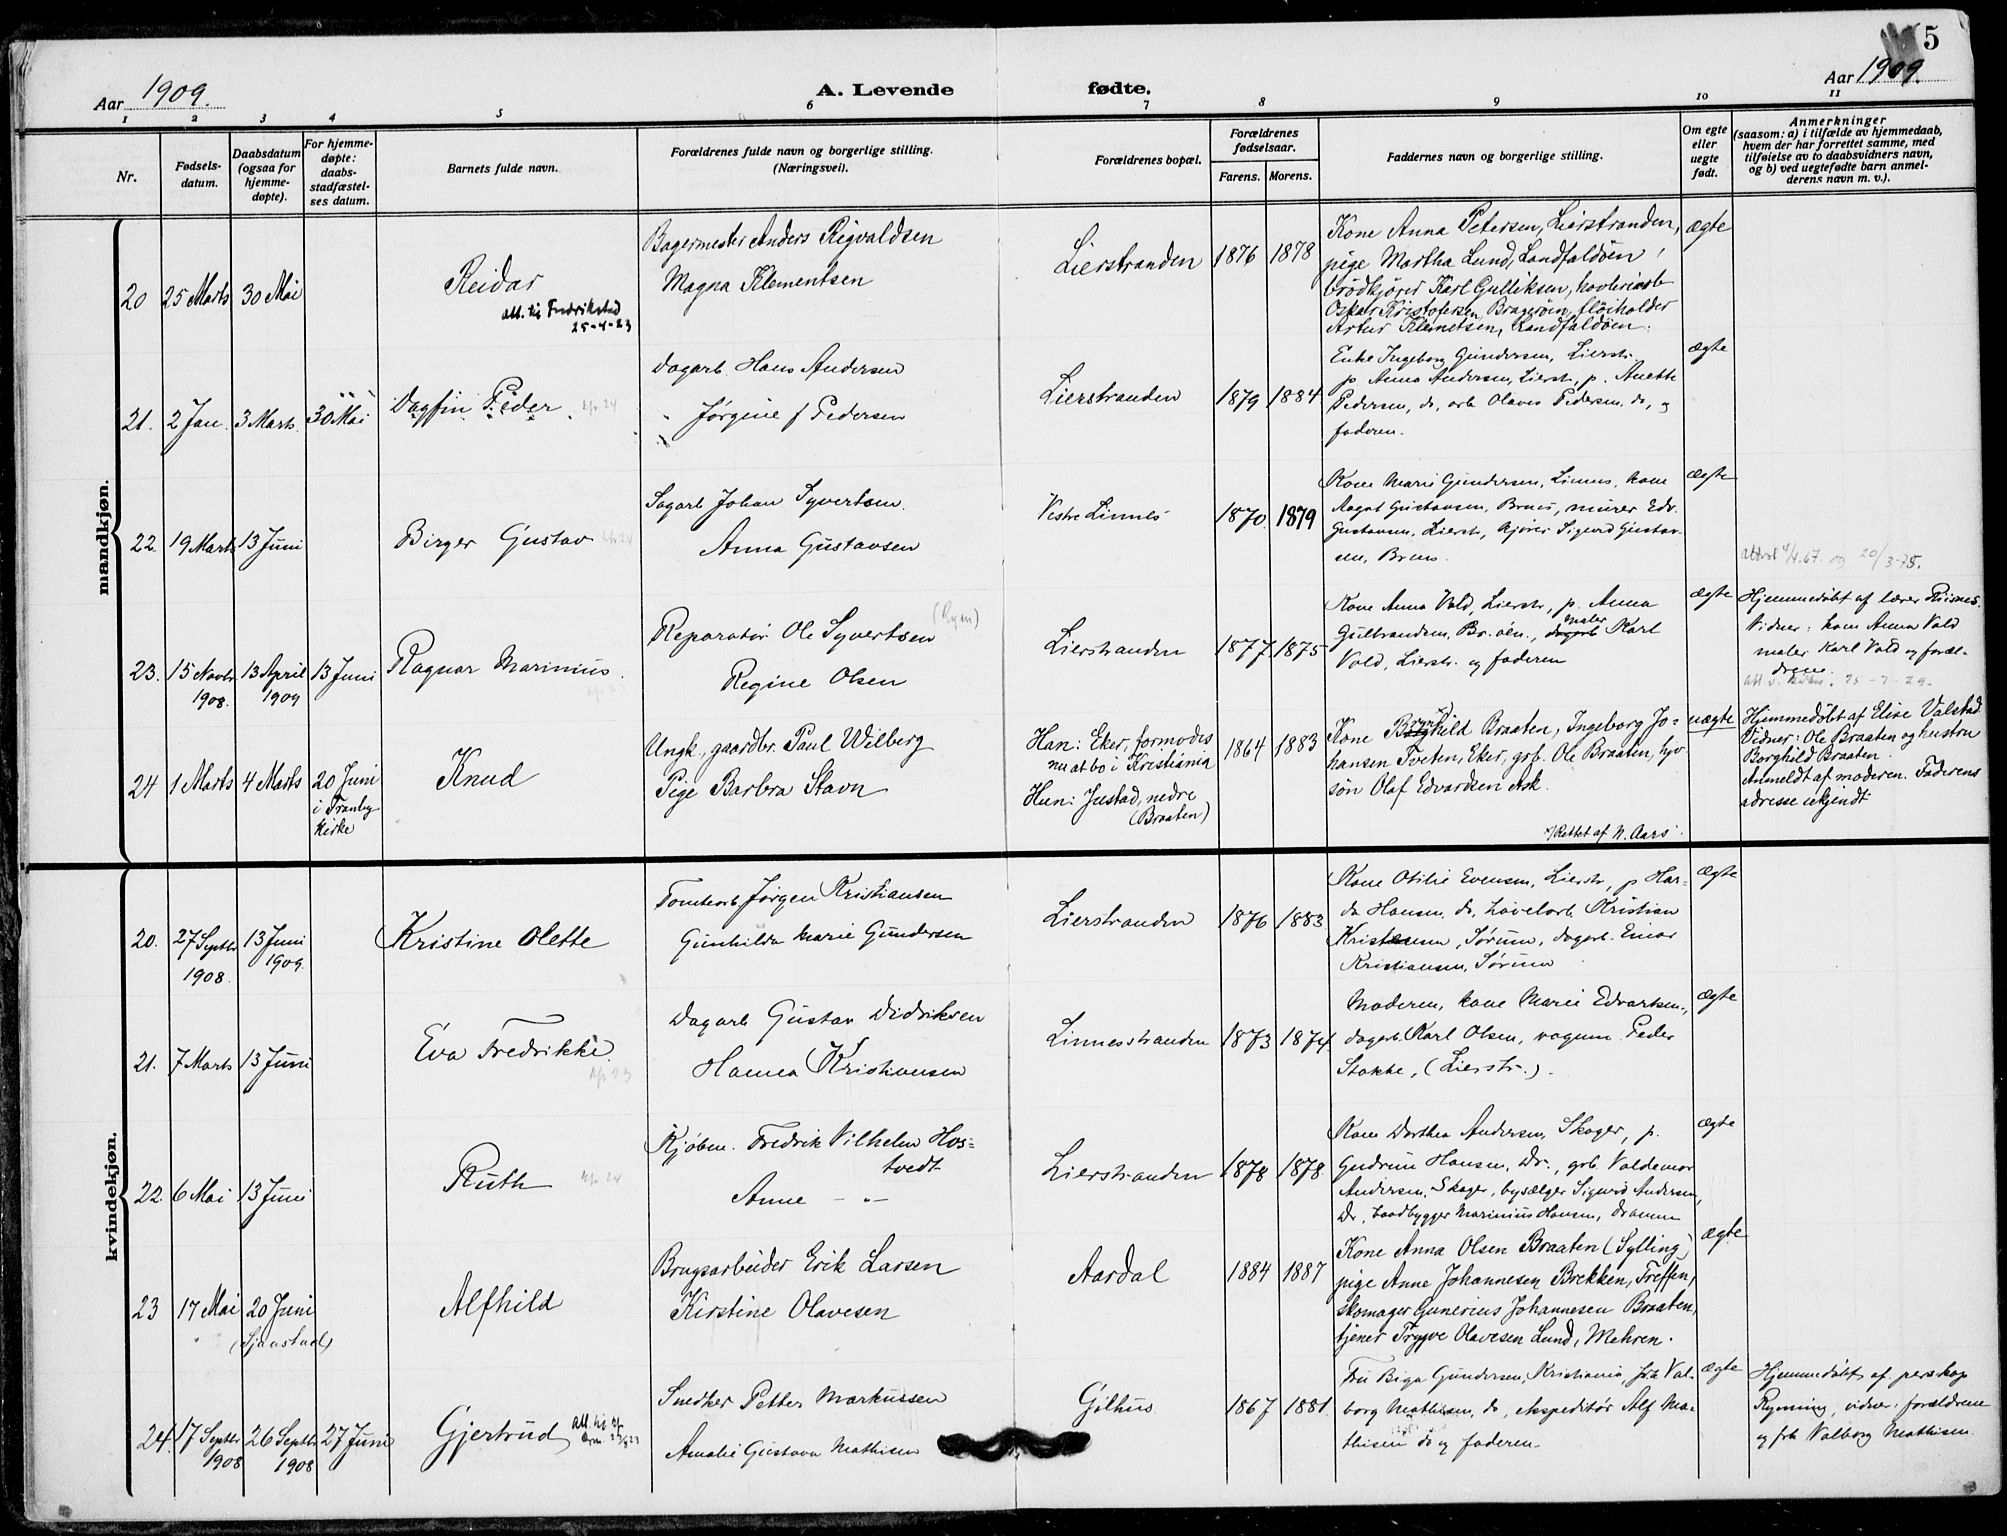 5
Aar 1909.
A. Levende fødte.
Aar 1909.
1 2 3 4 5 6 7 8 9 10 11
Nr.
Fødsels-
datum.
Daabsdatum
(ogsaa for
hjemme-
døpte).
For hjemme-
døpte:
daabs-
stadfæstel-
ses datum.
Barnets fulde navn.
Forældrenes fulde navn og borgerlige stilling.
(Næringsvei).
Forældrenes bopæl.
Forældrenes
fødselsaar.
Farens. Morens.
Faddernes navn og borgerlige stilling.
Om egte
eller
uegte
født.
Anmerkninger
(saasom: a) i tilfælde av hjemmedaab,
hvem der har forrettet samme, med
tilføielse av to daabsvidners navn,
og b) ved uegtefødte barn anmel-
derens navn m. v.).
mandkjøn.
20
25 Marts
30 Mai
Reidar
att. til Fredrikstad
25-4-23
Bagermester Anders Rigvaldsen
Magna Klementsen
Lierstranden
1876
1878
Kone Anna Petersen, Lierstranden,
pige Martha Lund, Landfaldøen,
brødkjører Karl Gulliksen, høvleriarb
Oskar Kristofersen Bragerøen, fløiholder
Artur Klemetsen, Landfaldøen.
ægte
21.
2 Jan.
3 Marts.
30 Mai
Dagfin Peder
Dagarb. Hans Andersen
Jørgine f Pedersen
Lierstranden
1879
1884
Enke Ingeborg Gundersen, Lierstr.
p. Anna Andersen, Lierstr., p. Anette
Pedersen, do, arb. Olaves Pedersen, do, og
faderen.
ægte
22.
19 Marts
13 Juni
Birger Gustav
Sagarb Johan Syvertsen.
Anna Gustavsen
Vestre Linnes
1870
1879
Kone Marie Gundersen, Linnes, kone
Aagot Gustavsen, Brens, murer Edv.
Gustavsen, Lierstr., kjører Sigurd Gustav-
sen, Brens.
ægte
og 20/3-75.
23.
15 Novbr
1908.
13 April
1909
13 Juni
Ragnar Marinius.
Reparatør Ole Syvertsen
(Rym)
Regine Olsen
Lierstranden
1877.
1875
Kone Anna Vold, Lierstr., p. Anna
Gulbrandsen, Br.øen., dagarb maler Karl
Vold, Lierstr. og faderen
ægte
Hjemmedøbt af lærer Risnes.
Vidner: kone Anna Vold
maler Karl Vold og foræl-
drene.
24
1 Marts
4 Marts
20 Juni
i Tranby
Kirke
Knud
Ungk., gaardbr. Paul Wilberg
Pige Barbra Stavn
Han: Eker, formodes
nu at bo i Kristiania
Hun: Justad, nedre
(Braaten)
1864
1883
Kone Borghild Braaten, Ingeborg Jo-
hansen Tveten, Eker, grb. Ole Braaten, hjv
søn Olaf Edvardsen Ask.
x) Rettet af N. Aars.
uægte
Hjemmedøbt af Elise Valstad
Vidner: Ole Braaten og hustru
Borghild Braaten.
Anmeldt af moderen. Faderens
adresse ukjendt
kvindekjøn.
20.
27 Septbr
1908.
13 Juni
1909.
Kristine Olette
Tomtearb. Jørgen Kristiansen
Gunhilda Marie Gundersen
Lierstranden
1876
1883
Kone Otilie Evensen, Lierstr., p Har-
da Hansen, do, høvelarb. Kristian
Kristensen, Sørum, dagarb. Einar
Kristiansen, Sørum
ægte
21.
7 Marts
13 Juni
Eva Fredrikke.
Dagarb Gustav Didriksen
Hanna Kristiansen
Linnesstranden
1873
1874
Moderen, kone Marie Edvartsen,
dagarb. Karl Olsen, vognm. Peder
Stokke, (Lierstr.).
ægte
22.
6 Mai
13 Juni
Ruth
Kjøbm. Fredrik Vilhelm Hos-
tvedt
Anne - " -
Lierstranden
1878
1878
Kone Dorthea Andersen, Skoger, p.
Gudrun Hansen, Dr., grb. Valdemar
Andersen, Skoger, bysælger Sigurd Andersen,
Dr., baadbygger Marinius Hansen, Drammen
ægte
23
17 Mai
20 Juni
(Sjaastad)
Alfhild
Brugsarbeider Erik Larsen
Kirstine Olavesen
Aardal
1884
1887
Kone Anna Olsen Braaten (Sylling)
pige Anne Johannesen Brekken, Treffen,
skomager Gunerius Johannesen Braaten,
tjener Trygve Olavesen Lund, Mehren.
ægte
24.
17 Septbr
1908
26 Septbr
1908
27 Juni
Gjertrud
Snedker Petter Markussen
Amalie Gustava Mathisen
Gilhus
1867
1881
Fru Biga Gundersen, Kristiania, frk Val-
borg Mathisen, do, ekspeditør Alf Ma-
thisen do og faderen.
ægte
Hjemmedøbt af perskap
Rynning, vidner: forældrene
og frk Valborg Mathisen.